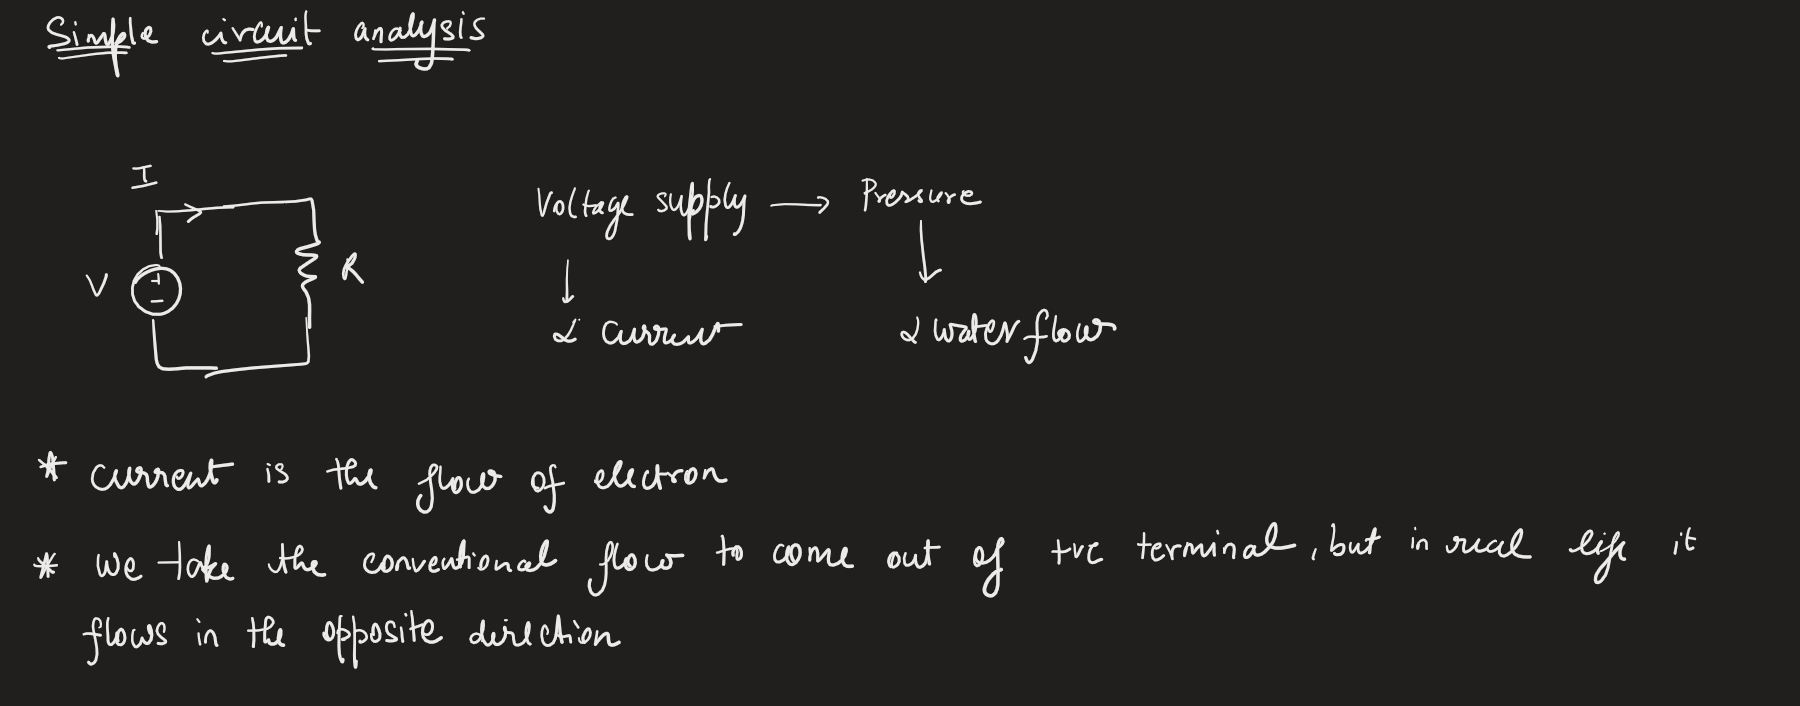 Simple circuit analysis
I
V
+
−
R
Voltage supply → Pressure
↓ ↓
α current α water flow
* current is the flow of electron
* we take the conventional flow to come out of +ve terminal, but in real life it
flows in the opposite direction